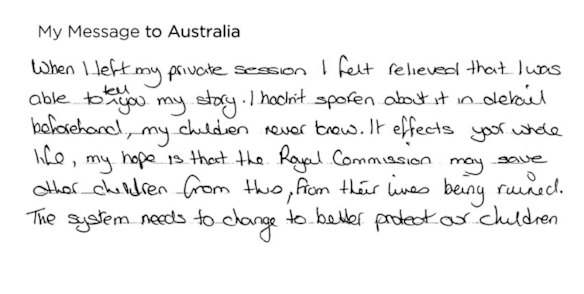 My Message to Australia
When I left my private session I felt relieved that I was
able to tell you my story. I hadn't spoken about it in detail
beforehand, my children never knew. It effects your whole
life, my hope is that the Royal Commission may save
other children from this, from their lives being ruined.
The system needs to change to better protect our children